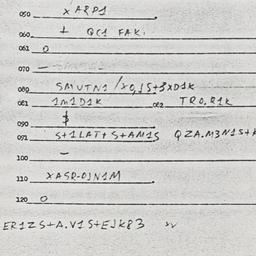 050 x ARP1
060 ⊥ QC1 FAK.
061 O
070 –
080 SMVTN1 /XO,1S+3XD1K
081 1M1D1K 082 TRO.R1K
090 $
091 S+1LAT+S+AM1S QZA.M3N1S+K
100 –
110 XASR-OJN1M
120 O
ER1ZS+A.V1S+EJK83